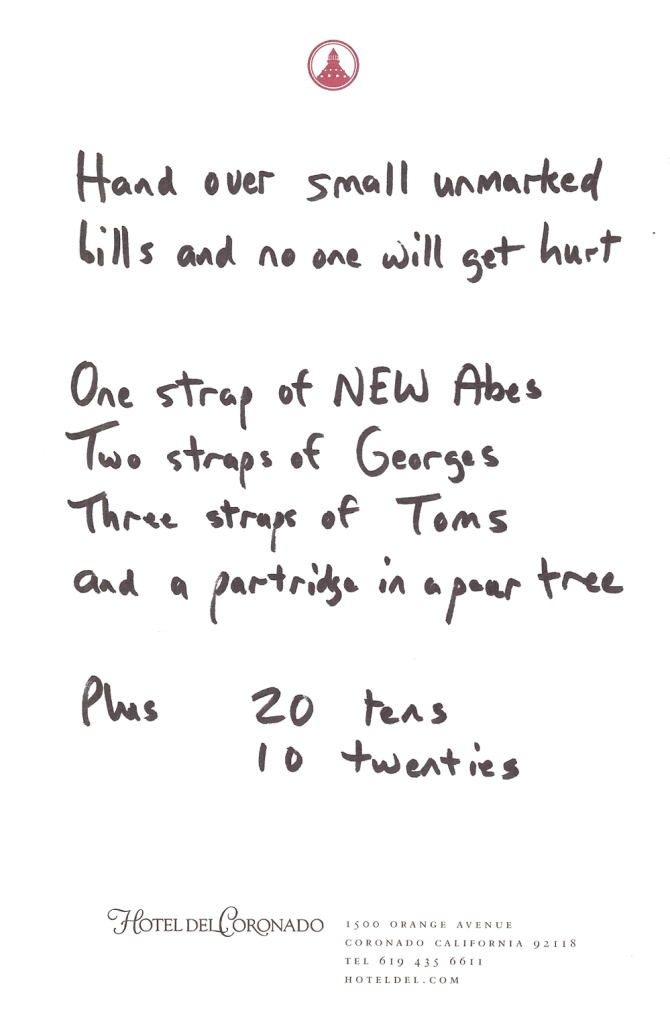 Hand over small unmarked
bills and no one will get hurt
One strap of NEW Abes
Two straps of Georges
Three straps of Toms
and a partridge in a pear tree
Plus 20 tens
10 twenties
HOTEL DEL CORONADO
1500 ORANGE AVENUE
CORONADO CALIFORNIA 92118
TEL 619 435 6611
HOTELDEL.COM